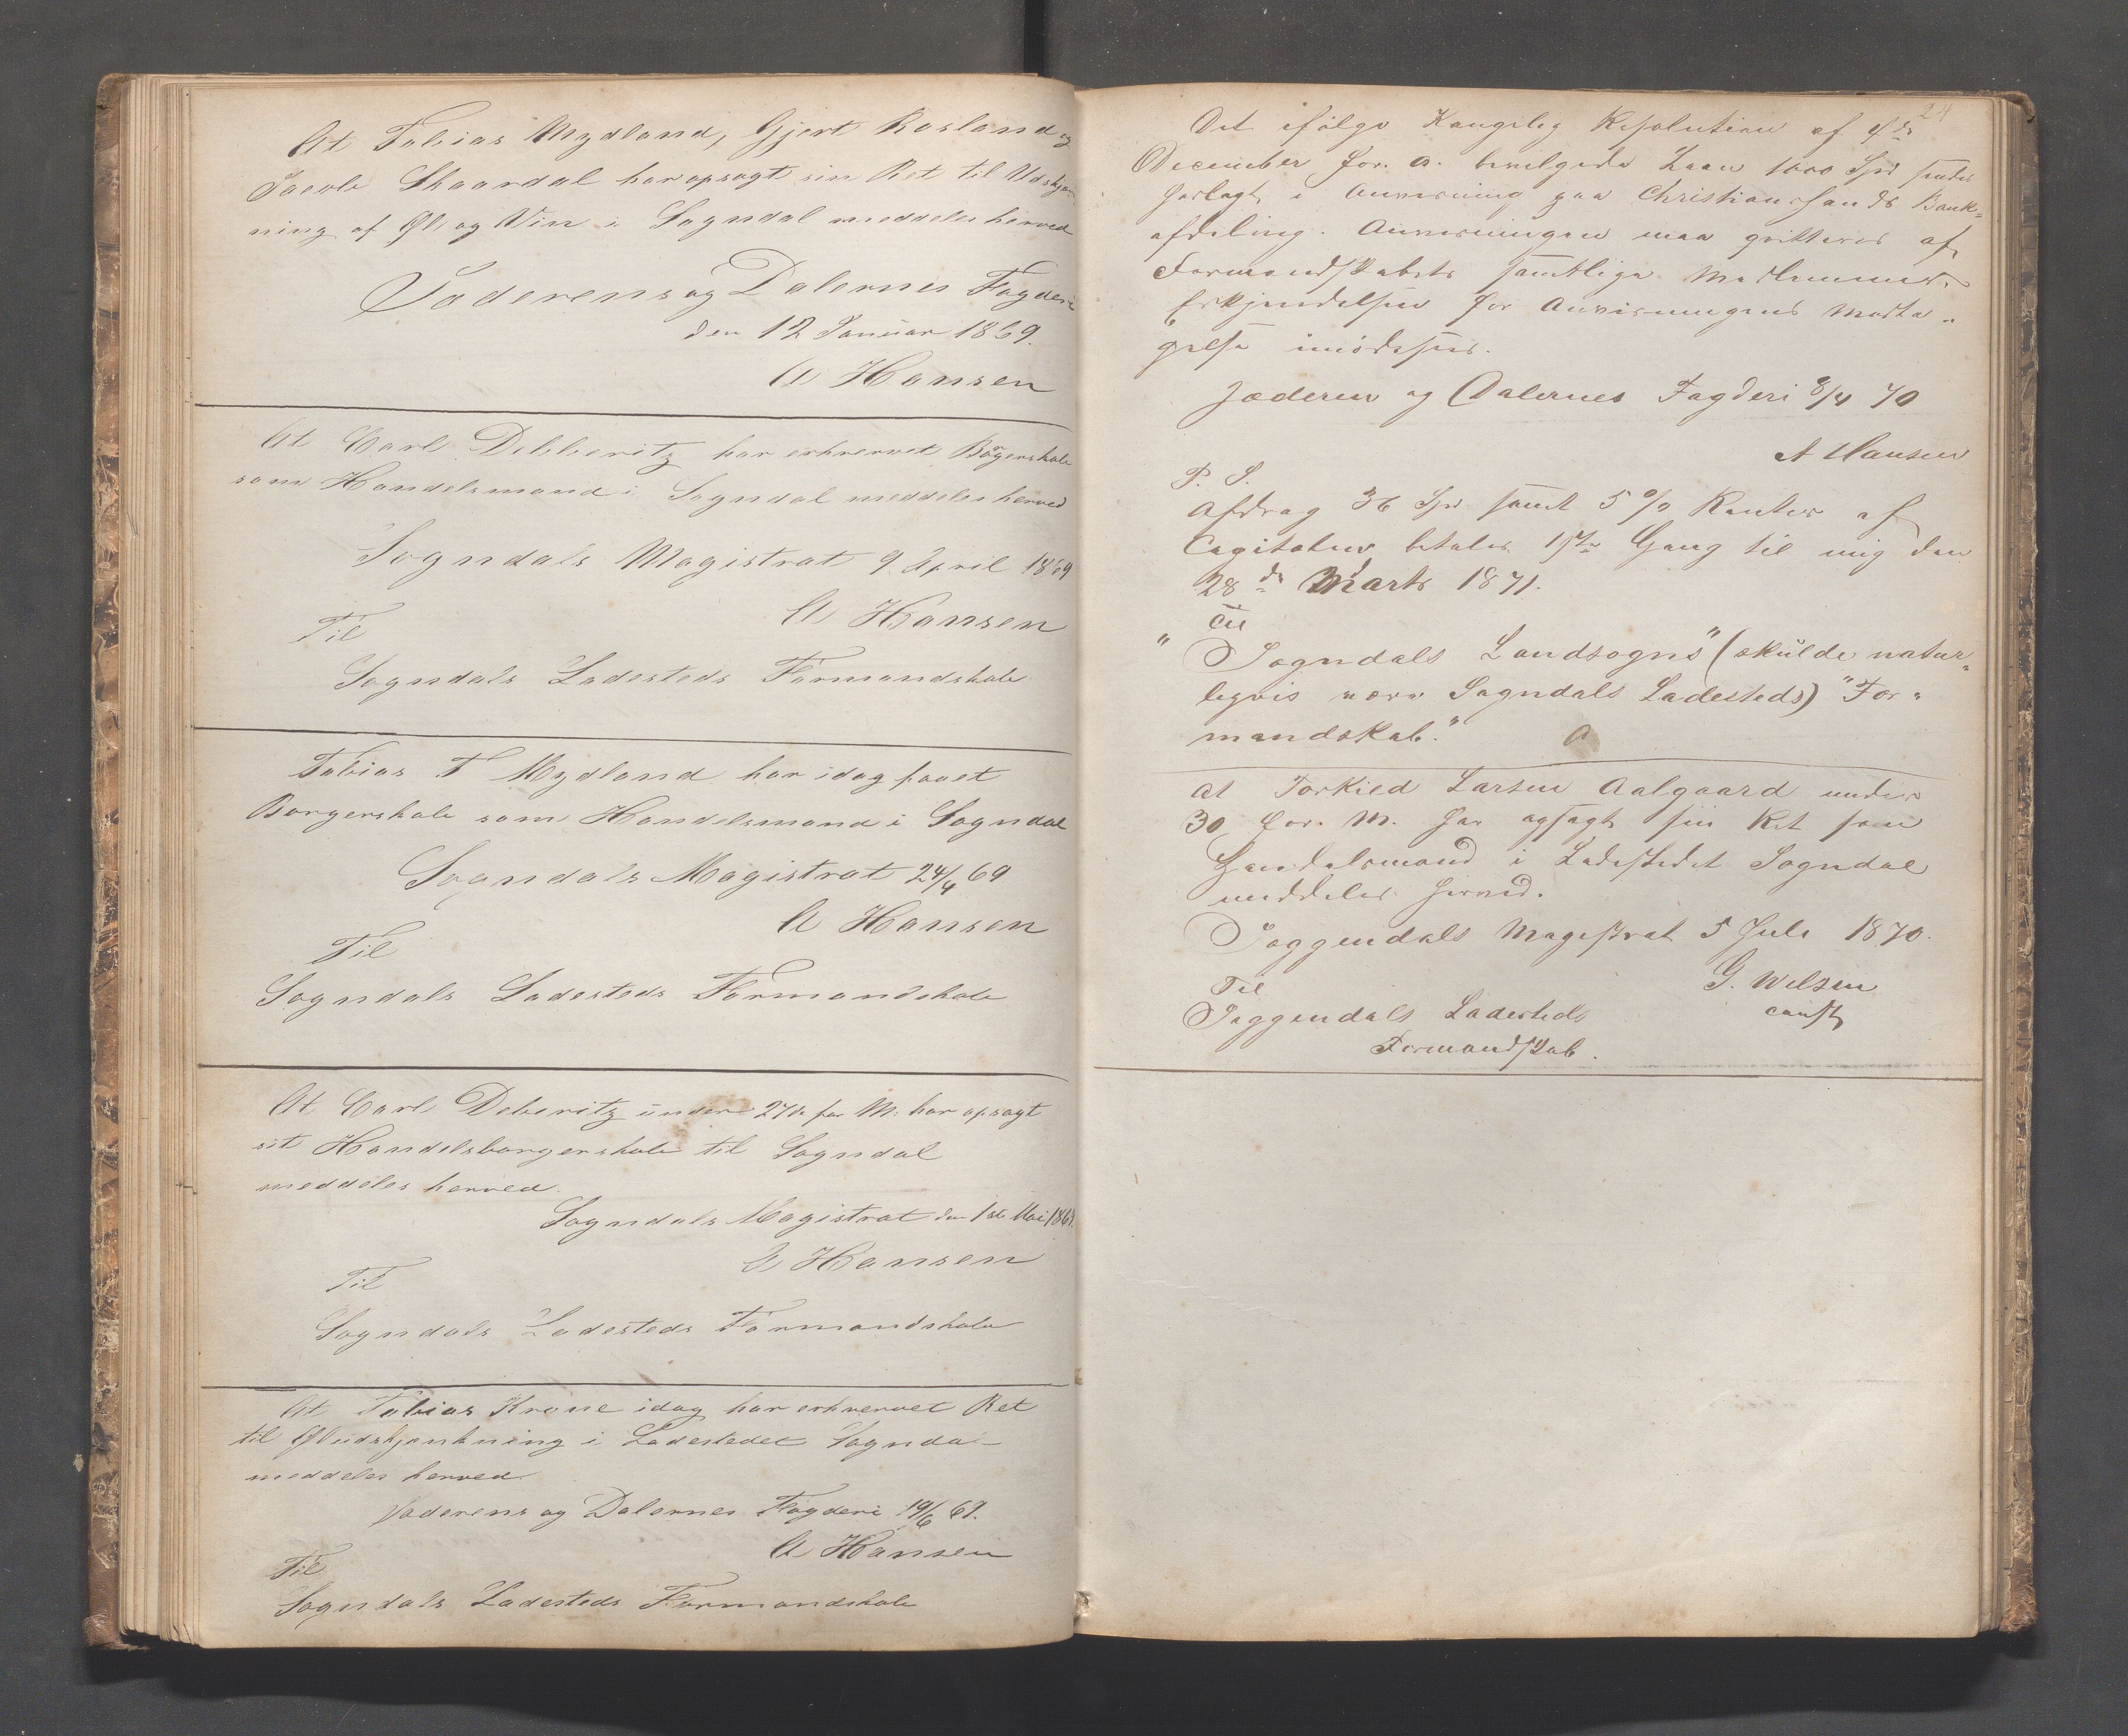 At Tobias Mydland, Gjert Rosland og
Jacob Skaardal har opsagt sin Ret til Udskjæn-
ning af Øl og Vin i Sogndal meddeles herved
Jæderens og Dalernes Fogderi
den 12 Januar 1869.
A Hansen
At Carl Debberitz har erhvervet Borgerskab
som Handelsmand i Sogndal meddeles herved
Sogndals Magistrat 9 April 1869
A Hansen
Til
Sogndals Ladesteds Formandskab
Tobias T Mydland har idag faaet
Borgerskab som Handelsmand i Sogndal
Sogndals Magistrat 24/4 69
A Hansen
Til
Sogndals Ladesteds Formandskab
At Carl Deberitz under 27de for M: har opsagt
sit Handelsborgerskab til Sogndal
meddeles herved.
Sogndals Magistrat den 1ste Mai 1869.
A Hansen
Til
Sogndals Ladesteds Formandskab
At Tobias Krone idag har erhvervet Ret
til Øludskjænkning i Ladestedet Sognda-
meddeles herved.
Jæderens og Dalernes Fogderi 19/6 69.
A Hansen
Til
Sogndals Ladesteds Formandskab
24
Det ifølge Kongelig Resolution af 4de
December for. A. bevilgede Laan 1000 Spd sendes
herlagt i Anvisning paa Christianssands Bank-
afdeling. Anvisningen maa qvitteres af
Formandskabets samtlige Medlemmer.
Erkjendelsen for Anvisningens Modta-
gelse imødesees.
Jæderen og Dalernes Fogderi 8/4 70
A Hansen
P. S.
Afdrag 36 Spd samt 5 % Renter af
Capitalen betales 1ste Gang til mig den
28de Marts 1871.
Til
" Sogndals Landsogns" (skulde natur-
ligvis være Sogndals Ladesteds) "For-
mandskab."
At Torkild Larsen Aalgaard under
30 for. M. har opsagt sin Ret som
Handelsmand i Ladestedet Sogndal
meddeles herved.
Soggendals Magistrat 5 Juli 1870.
G. Wilsen
const
Til
Soggendals Ladesteds
Formandskab.